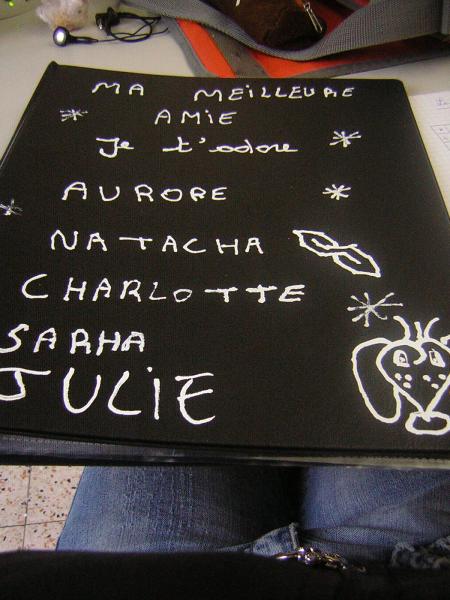 MA MEILLEURE
AMIE
Je t'adore
AURORE
NATACHA
CHARLOTTE
SARHA
JULIE